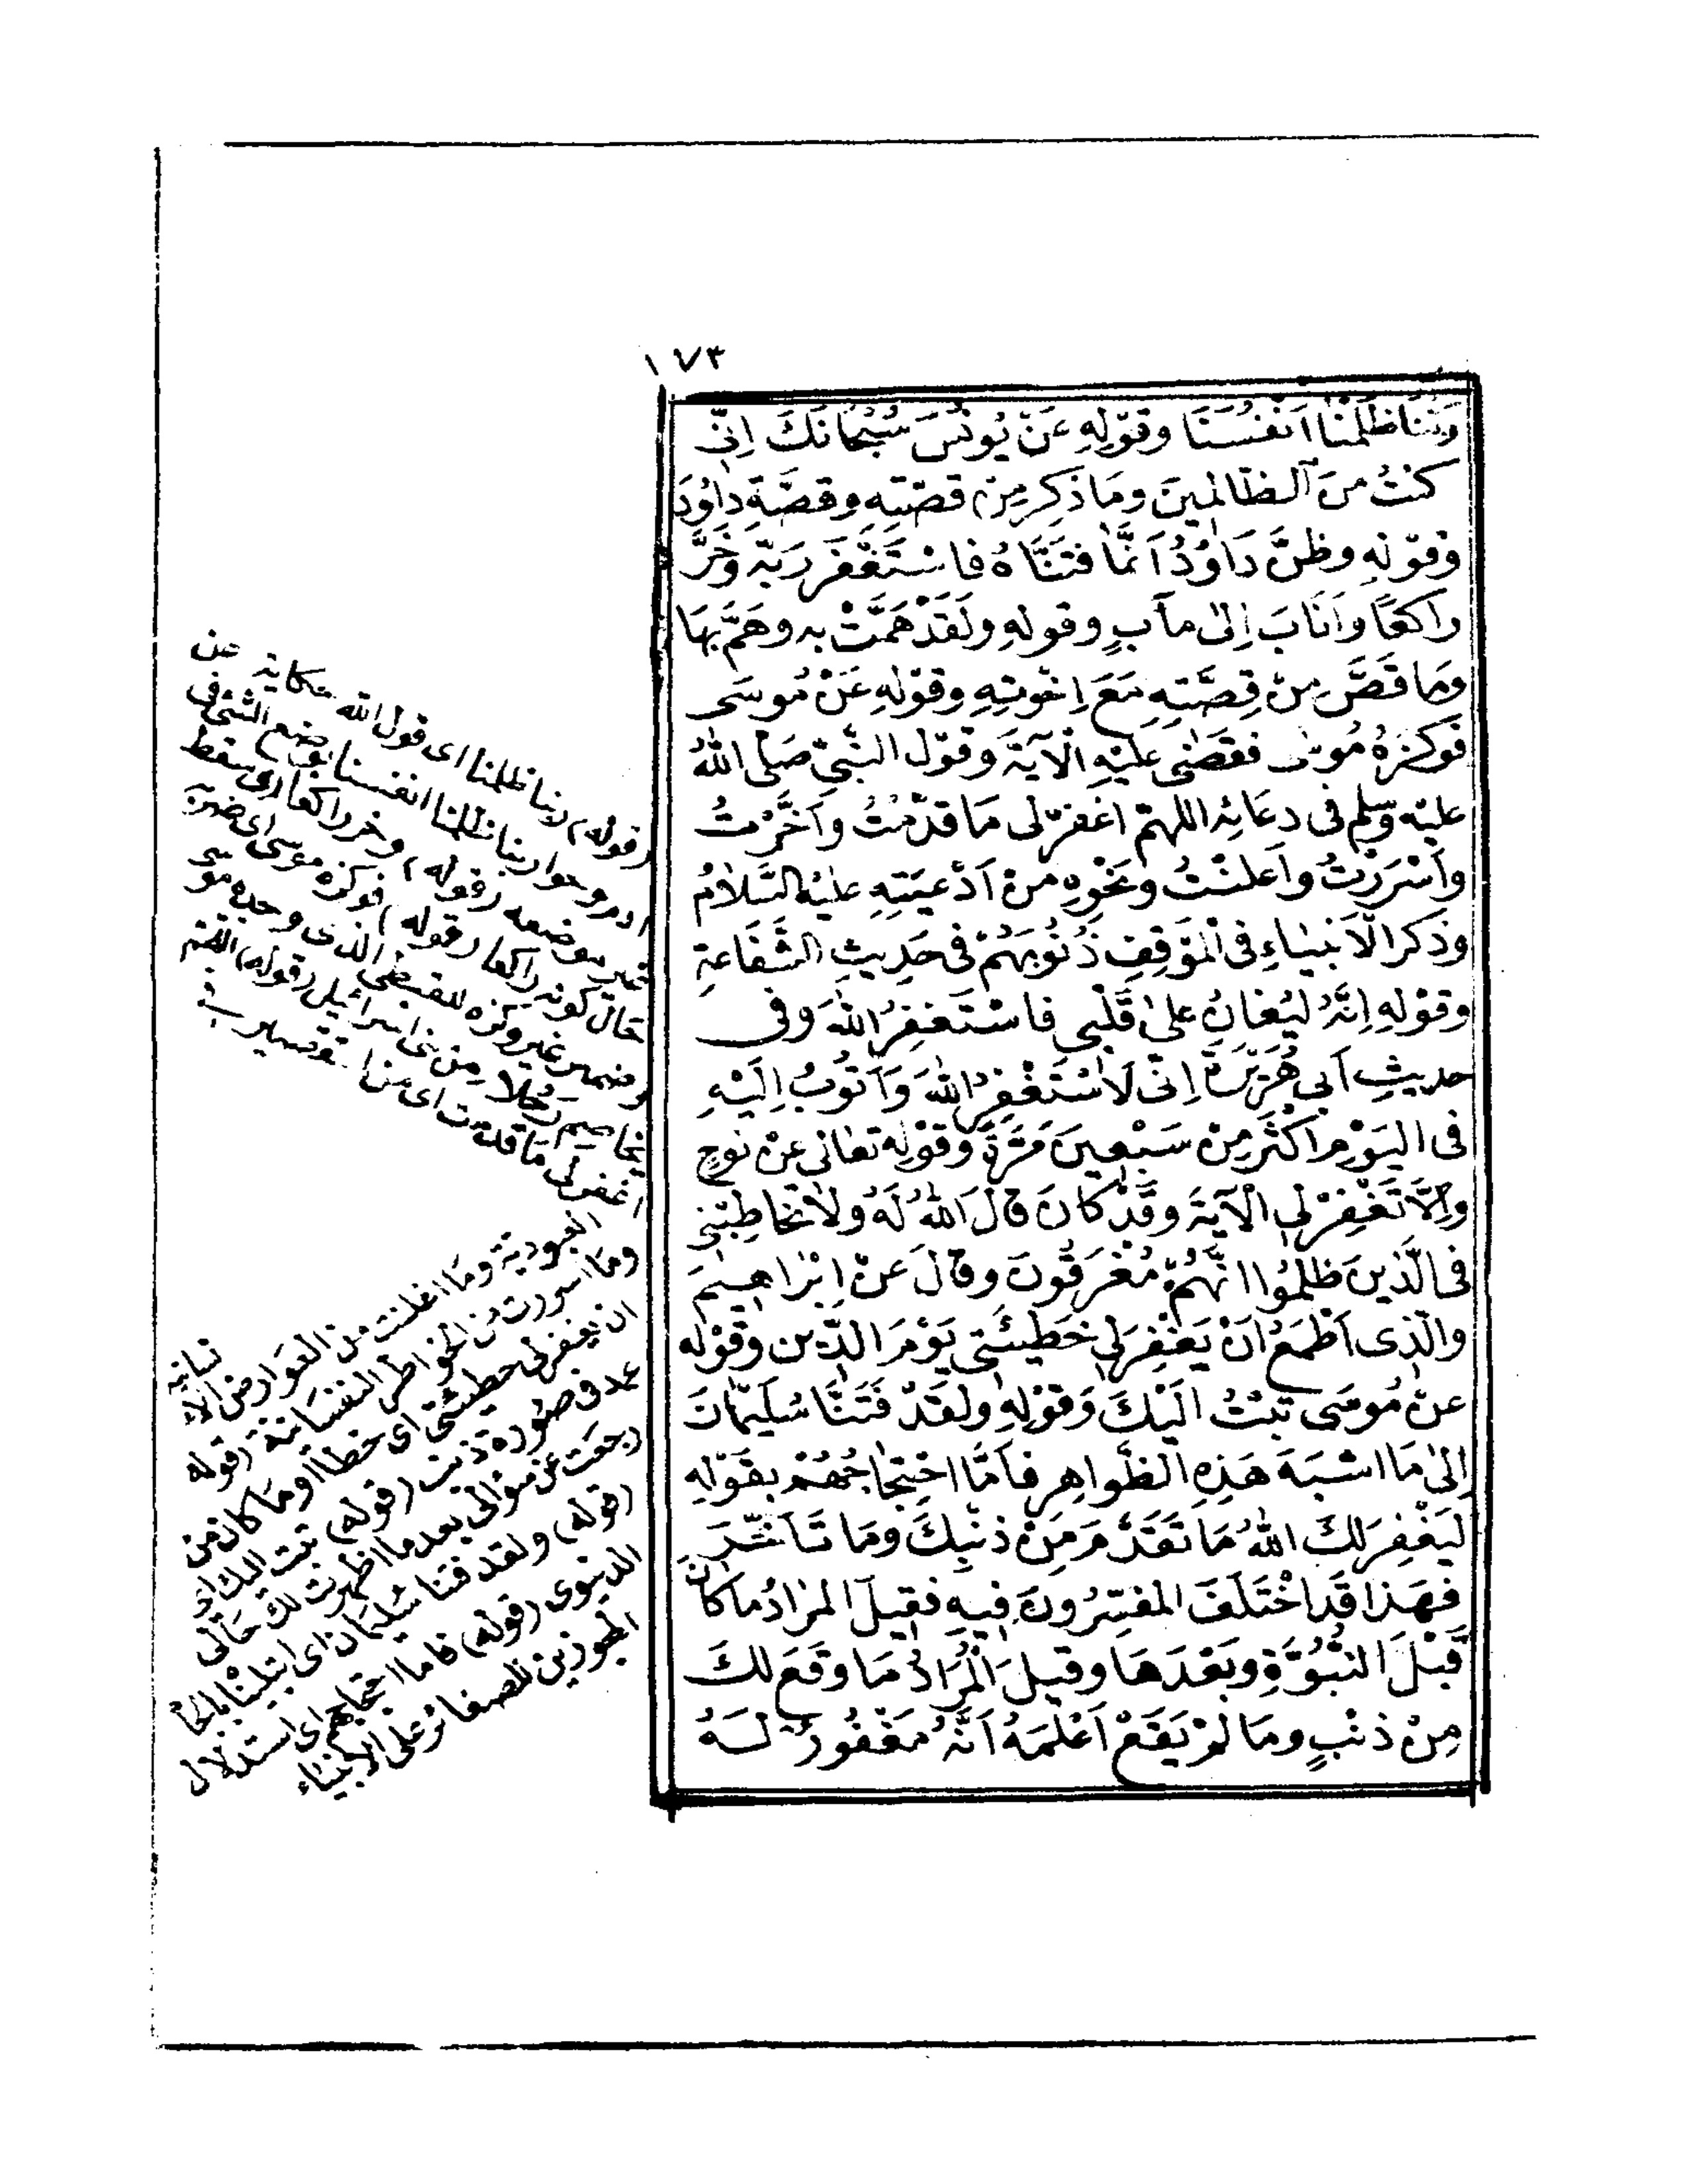 ١٧٣
رَبَّنَا ظَلَمْنَا اَنْفُسَنَا وقوْلِهِ عَنْ يُونُسَ سُبْحَانَكَ اِنّى
كنتُ مِنَ الظالمِينَ ومَا ذَكِر مِنْ قصّتهِ وقصَّةِ دَاوُدَ
وقوْلهِ وظنَّ دَاوُدُ اَنَّمَا فتَنَّاهُ فاسْتَغْفَرَ رَبّه وَخَرَّ
راكعًا وَاَنَابَ اِلىٰ مآبٍ وقولهِ ولَقَدْ هَمَّتْ به وهَمَّ بهَا
ومَا قَصَّ مِنْ قِصَّتِهِ مَعَ اِخْوتِهِ وقوْلهِ عَنْ مُوسَى
فَوكزَهُ مُوسٰى فقضٰى عليْهِ الْآيَةَ وَقوْل النَّبىّ صَلى اللهُ
عليْه وسَلم فى دعَائه اللهمّ اغفرْ لى مَا قدّمْتُ وأخَّرْتُ
وأسْرَرْتُ وأعلنْتُ ونحْوِهِ مِنْ اَدْعيَتِهِ عليْه السَّلامُ
وذكر الْاَنبيَاءِ فى الموْقِفِ ذُنُوبَهُمْ فى حَدِيثِ الشَّفَاعَةِ
وقوْلهِ اِنَّهُ ليُغانُ علىٰ قَلْبى فاسْتَغفِرُ اللهَ وفى
حديثِ اَبى هُرَيْرَةَ اِنّى لَاَسْتَغْفِرُ اللهَ وَاَتوُبُ اِلَيْهِ
فى اليَوْمِ اكْثَر مِنْ سَبْعينَ مَرّةً وقوْلِه تعَالى عنْ نوحٍ
وإلَّا تَغْفِرْ لى الْآيَةَ وقَدْ كانَ قالَ اللهُ لَهُ ولَا تخَاطِبْنى
فى الَّذِينَ ظلمُوا انَّهُمْ مُغْرَقُونَ وقالَ عنْ اِبْرَاهِيمَ
والّذِى اَطْمَعُ اَنْ يَغْفِرَ لى خَطيئَتى يَوْمَ الدِّين وقوْله
عنْ مُوسَى تبْتُ اليْكَ وَقوْلهِ ولَقَدْ فَتَنَّا سُلَيْمَانَ
اِلىٰ مَا اشبَهَ هَذِهِ الظَّواهِر فأمَّا احْتِجَاجُهُمْ بقَوْلِهِ
لِيَغْفِرَ لكَ اللهُ مَا تَقَدَّمَ مِنْ ذنْبِكَ ومَا تَأخَّرَ
فهَذا قَدِ اخْتَلَفَ المفَسِّرُونَ فيهِ فقِيلَ المرَادُ مَا كانَ
قَبْلَ النبُوَّةِ وبَعْدَهَا وقيلَ الْمُرَادُ مَا وَقَعَ لكَ
مِنْ ذنْبٍ ومَا لمْ يَقَعْ اَعْلَمَهُ اَنَّهُ مَغْفُورٌ لَهُ
(قوله) ربنا ظلمنا اى قول الله حكاية عن
ادم وحوا ربنا ظلمنا انفسنا بوضع الشئ فى
غير موضعه (قوله) وخر راكعا اى سقط
حال كونه راكعا (قوله) فوكزه موسى اى ضربه
اغفر لى ما قدمت اى من تقصير فى
العبودية وما اعلنت من العوارض الانسانية
وما اسررت من الخواطر النفسانية (قوله
ان يغفر لى خطيئتى اى خطأ وما كان من
عمد فى صورة ذنب (قوله) تبت اليك اى
رجعت عن سؤالى بعد ما اظهرت لك حالى
(قوله) ولقد فتنا سليمان اى ابتليناه
الدنيوى (قوله) فاما احتجاجهم اى استدلال
المجوزين للصغائر على الانبياء